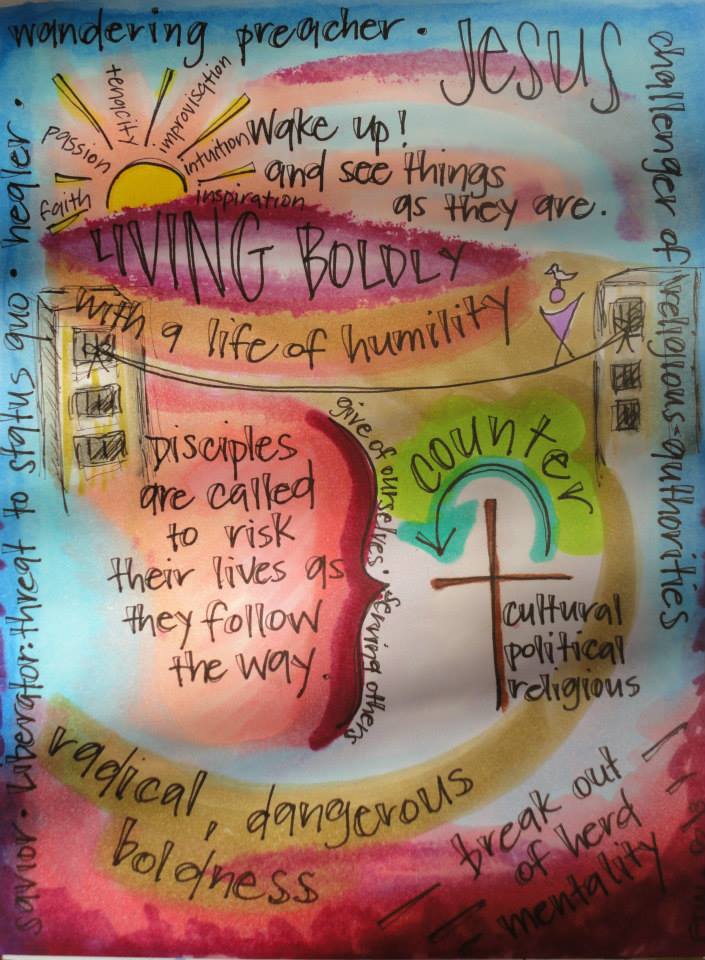 wandering preacher.
JESUS
challenger of religious-authorities
savior. liberator. threat to status quo. healer.
faith
passion
tenacity
improvisation
intuition
inspiration
Wake up!
and see things
as they are.
LIVING BOLDLY
with a life of humility
Disciples
are called
to risk
their lives as
they follow
the way.
give of ourselves. serving others
counter
cultural
political
religious
radical, dangerous
boldness
break out
of herd
mentality